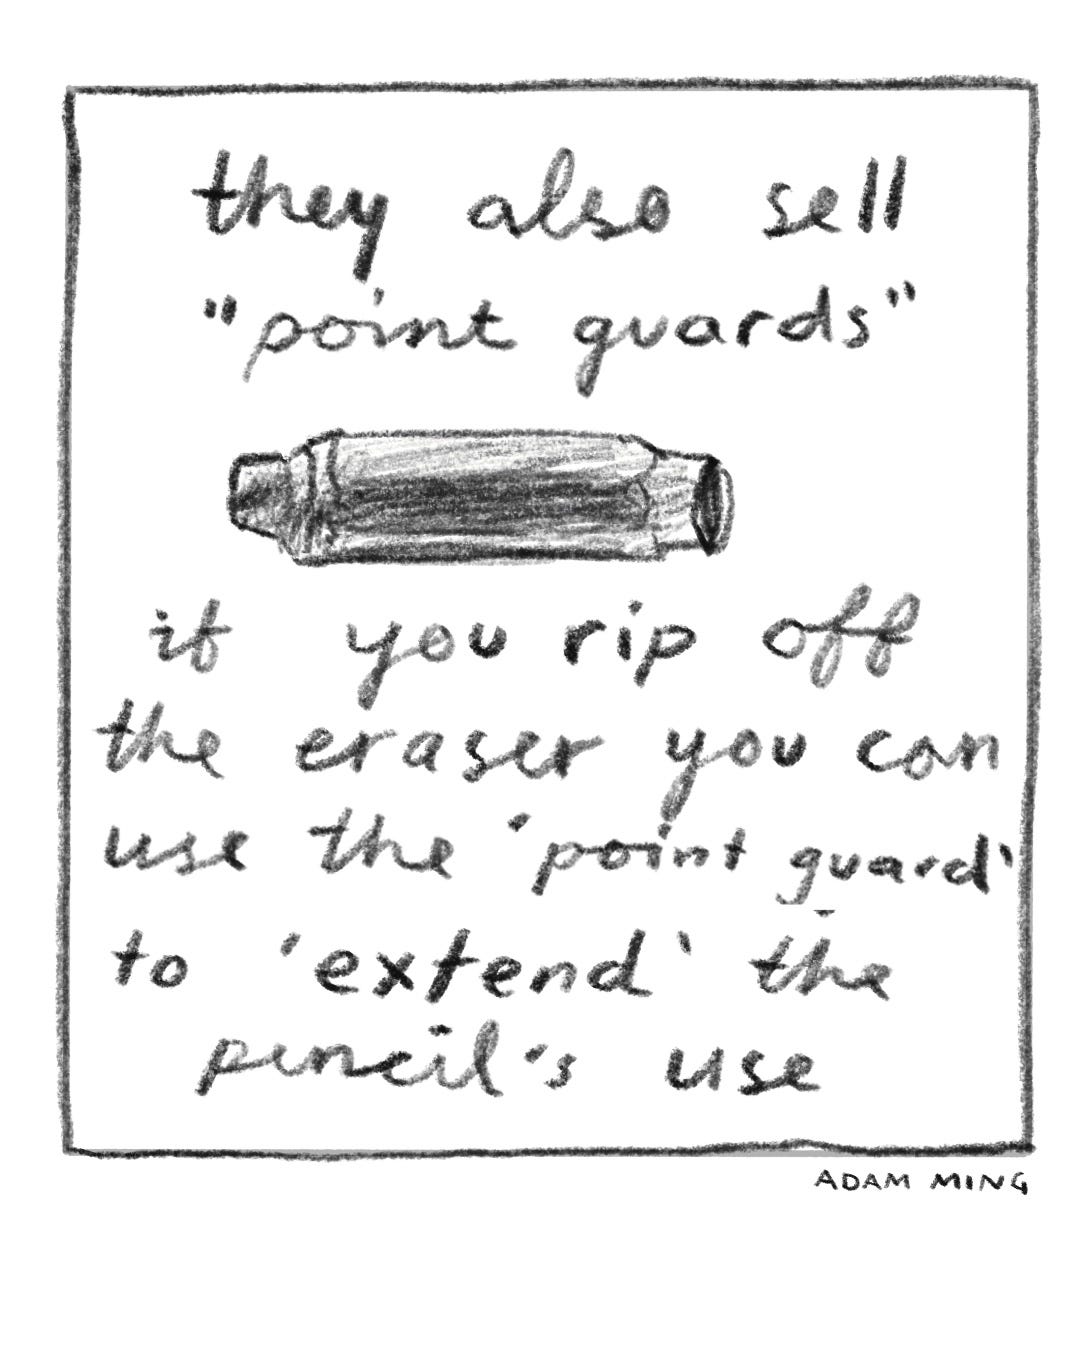 they also sell
"point guards"
if you rip off
the eraser you can
use the 'point guard'
to 'extend' the
pencil's use
ADAM MING